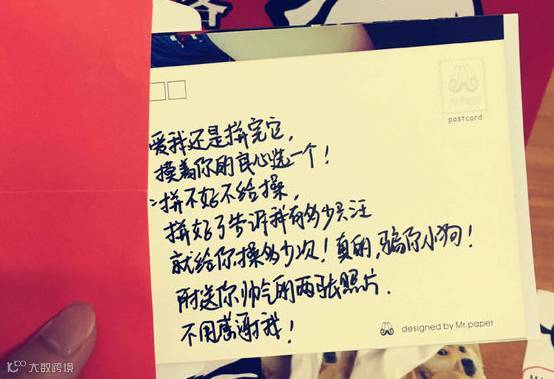 postcard
爱我还是拼完它，
摸着你的良心选一个！
拼不好不给操，
拼好了告诉我有多少只汪
就给你操多少次！真的，骗你小狗！
附送你帅气的两张照片.
不用感谢我！
designed by Mr.paper
大数跨境